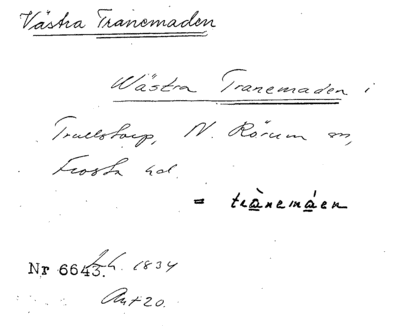 Västra Tranemaden
Wästra Tranemaden i
Trulstorp, N. Rörum sn,
Frosta hd.
= trànemáen
Nr 6643. 1834
Akt 20.